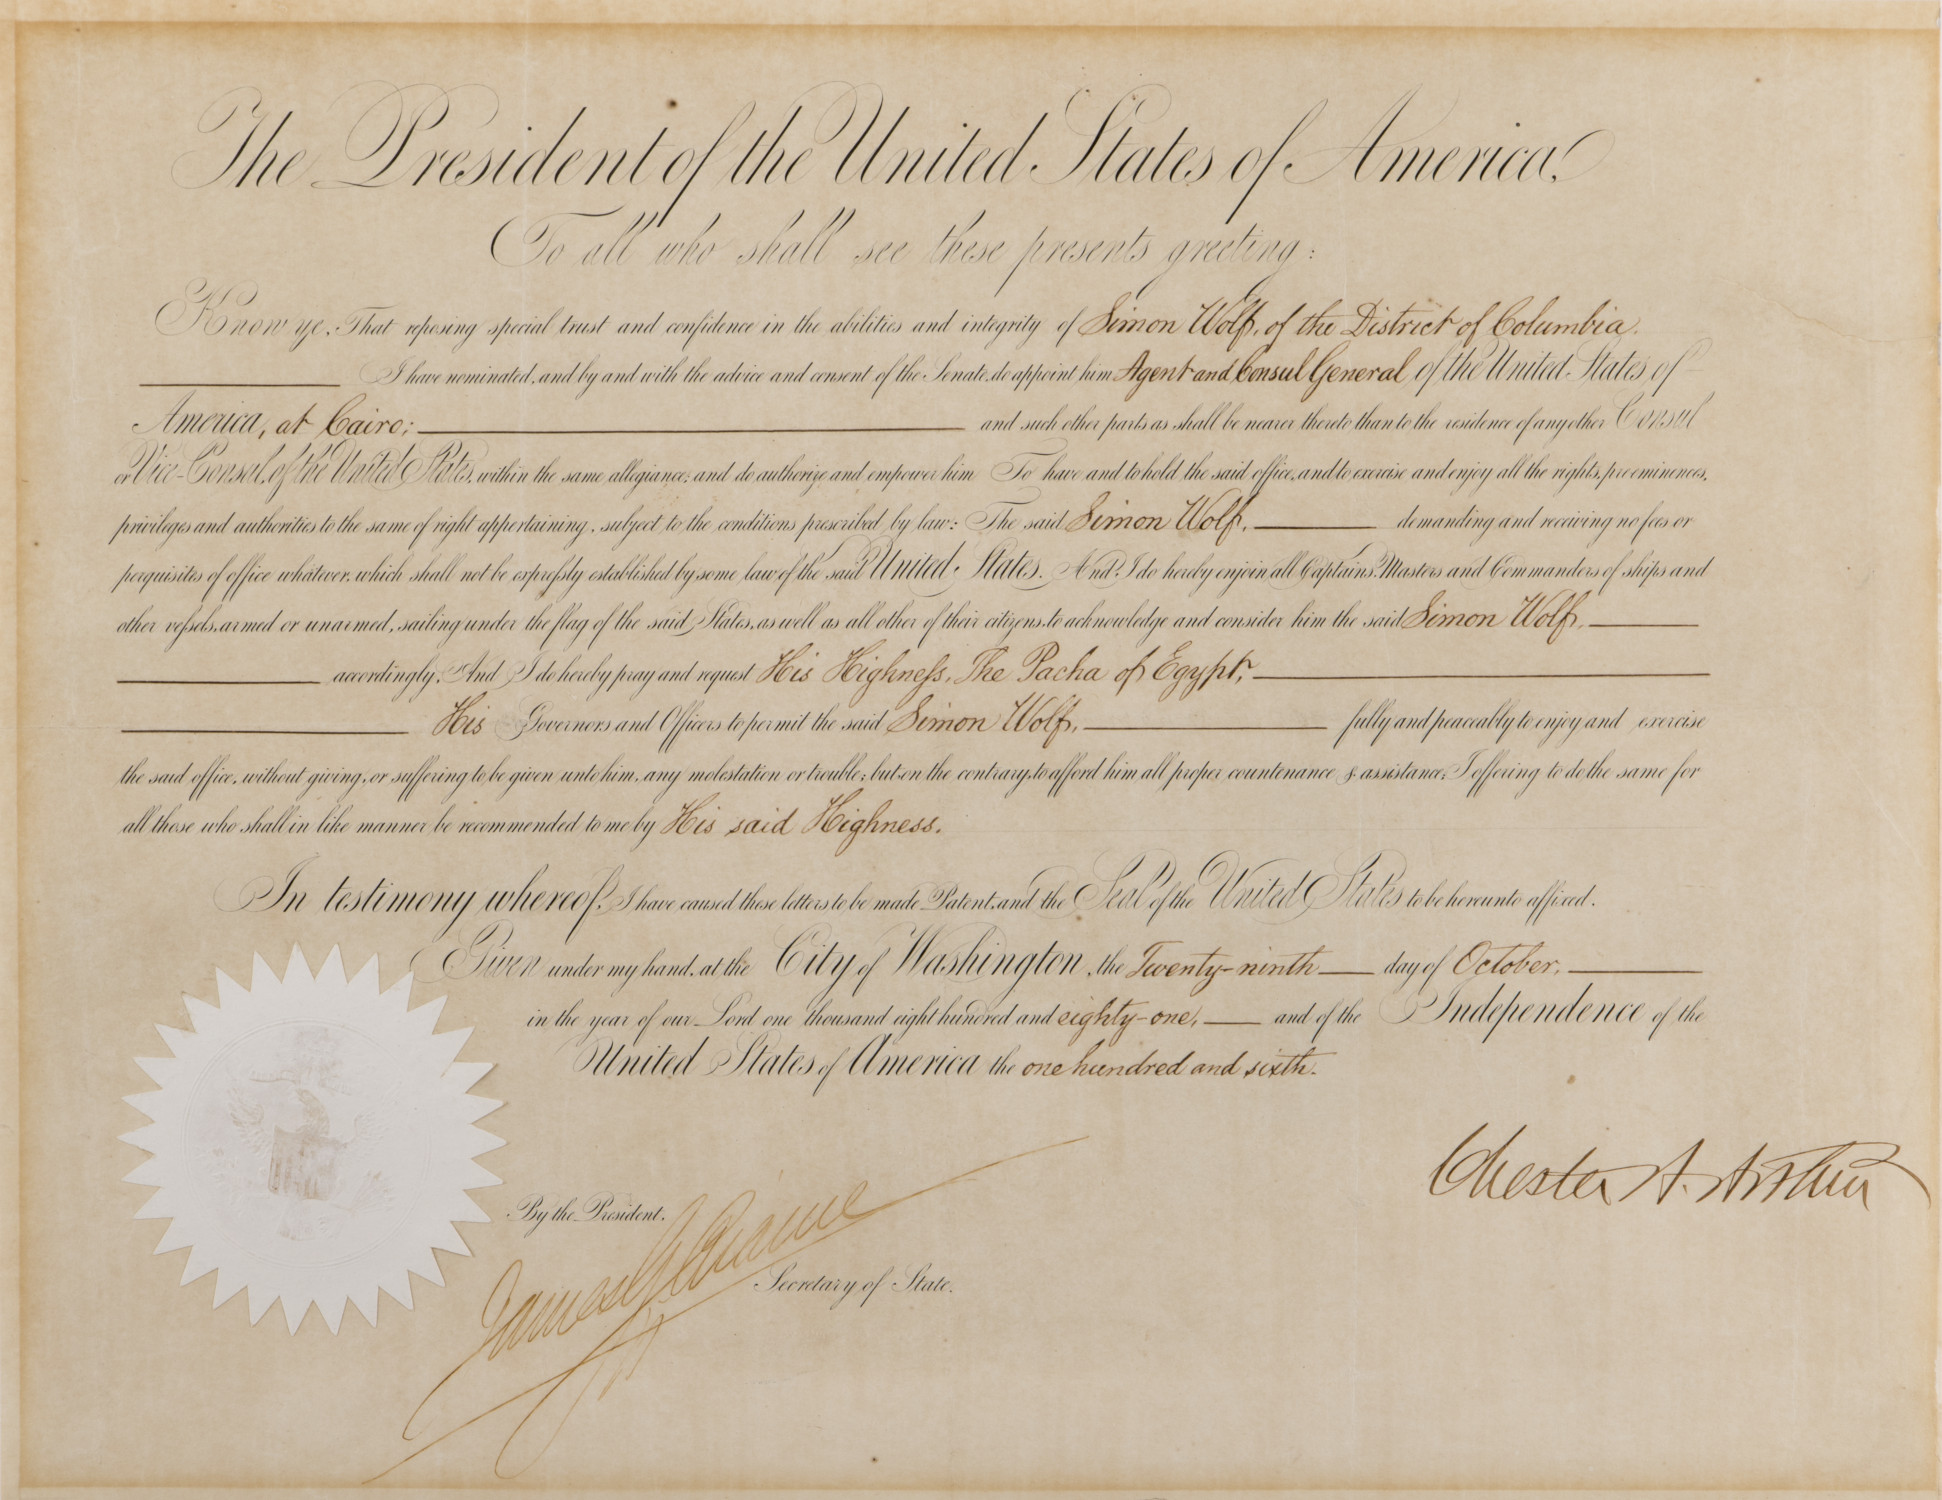 The President of the United States of America,
To all who shall see these presents greeting:
Know ye, That reposing special trust and confidence in the abilities and integrity of Simon Wolf, of the District of Columbia.
I have nominated, and by and with the advice and consent of the Senate, do appoint him Agent and Consul General of the United States of
America, at Cairo; and such other parts as shall be nearer thereto than to the residence of any other Consul
or Vice-Consul, of the United States, within the same allegiance; and do authorize and empower him To have and to hold the said office, and to exercise and enjoy all the rights, preeminences,
privileges and authorities to the same of right appertaining, subject to the conditions prescribed by law: The said Simon Wolf, demanding and receiving no fees or
perquisites of office whatever, which shall not be expressly established by some law of the said United States. And I do hereby enjoin all Captains, Masters and Commanders of ships and
other vessels, armed or unarmed, sailing under the flag of the said States, as well as all other of their citizens, to acknowledge and consider him the said Simon Wolf,
accordingly. And I do hereby pray and request His Highness, The Pacha of Egypt,
His Governors and Officers to permit the said Simon Wolf, fully and peaceably to enjoy and exercise
the said office, without giving, or suffering to be given unto him, any molestation or trouble; but on the contrary, to afford him all proper countenance & assistance; I offering to do the same for
all those who shall in like manner be recommended to me by His said Highness.
In testimony whereof, I have caused these letters to be made Patent, and the Seal of the United States to be hereunto affixed.
Given under my hand, at the City of Washington, the Twenty-ninth day of October,
in the year of our Lord one thousand eight hundred and eighty-one, and of the Independence of the
United States of America the one hundred and sixth.
Chester A. Arthur
By the President.
James G. Blaine
Secretary of State.